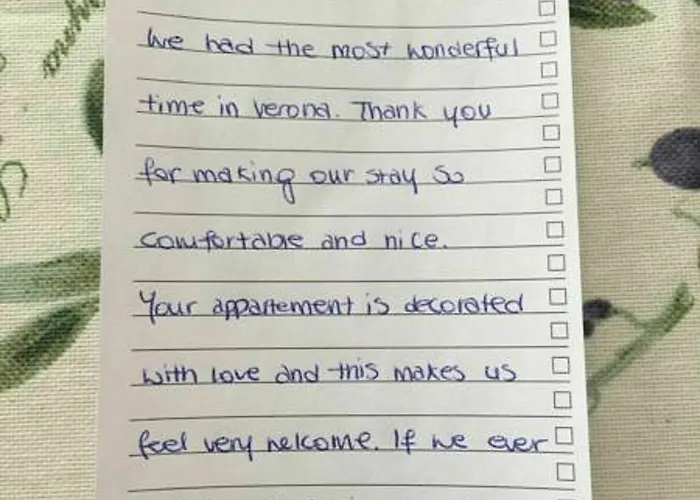 We had the most wonderful
time in verona. Thank you
for making our stay so
comfortable and nice.
Your appartement is decorated
with love and this makes us
feel very welcome. If we ever